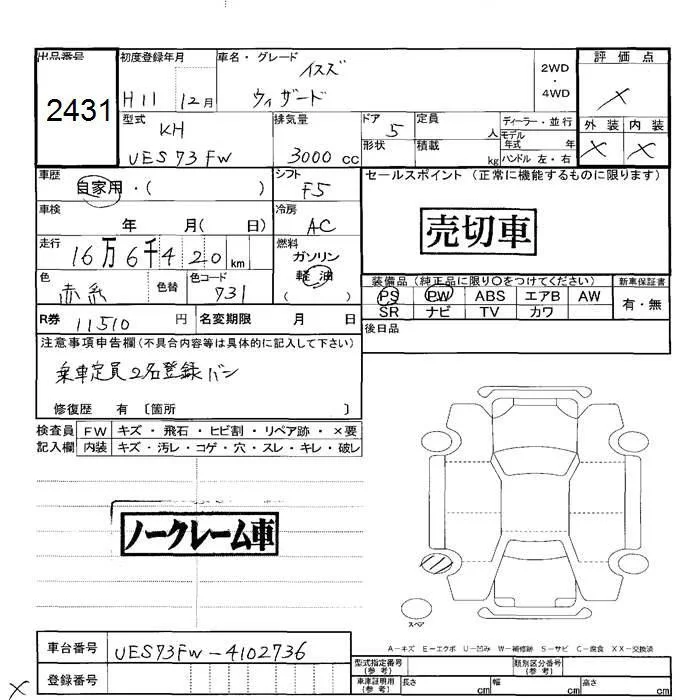 出品番号 初度登録年月 車名・グレード 2WD ・ 4WD 評価点
2431 H11 12月 イスズ ウィザード ×
型式 排気量 ドア 定員 人 ディーラー・並行 外装 内装
KH UES73FW 3000cc 5 形状 積載 kg モデル年式 年 ハンドル 左・右 × ×
車歴 自家用・( ) シフト F5 セールスポイント(正常に機能するものに限ります)
車検 年 月( 日) 冷房 AC 売切車
走行 16万6千420km 燃料 ガソリン 軽油 ( )
色 赤系 色替 色コード 731 装備品(純正品に限り○をつけてください) 新車保証書
PS PW ABS エアB AW 有・無
SR ナビ TV カワ
R券 11510円 名変期限 月 日 後日品
注意事項申告欄(不具合内容等は具体的に記入して下さい)
乗車定員2名登録バン
修復歴 有 〔箇所 〕
検査員 FW キズ・飛石・ヒビ割・リペア跡・×要
記入欄 内装 キズ・汚レ・コゲ・穴・スレ・キレ・破レ
ノークレーム車
スペア
A-キズ E-エクボ U-凹み W-補修跡 S-サビ C-腐食 XX-交換済
車台番号 UES73FW-4102736 型式指定番号(参考) 類別区分番号(参考)
登録番号 車庫証明用(参考) 長さ cm 幅 cm 高さ cm
×